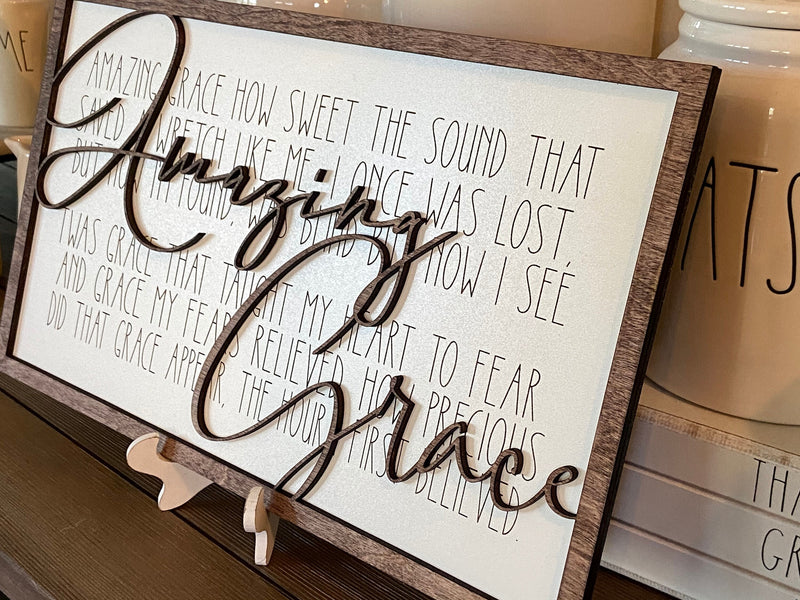 AMAZING GRACE HOW SWEET THE SOUND THAT
SAVED A WRETCH LIKE ME. I ONCE WAS LOST,
BUT NOW I'M FOUND, WAS BLIND BUT NOW I SEE
TWAS GRACE THAT TAUGHT MY HEART TO FEAR
AND GRACE MY FEARS RELIEVED HOW PRECIOUS
DID THAT GRACE APPEAR, THE HOUR I FIRST BELIEVED.
Amazing
Grace
ME
ATS
THA
GR